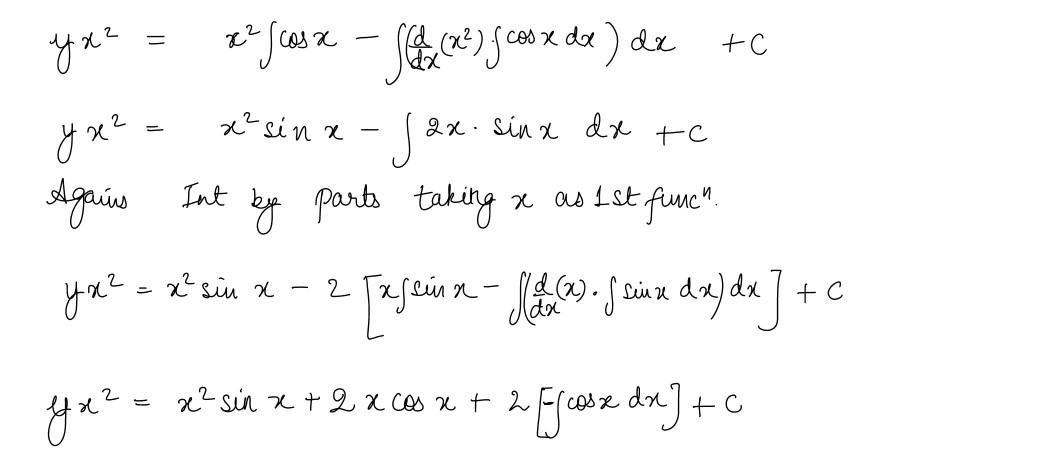 yx² = x²∫cos x − ∫(d/dx(x²)∫cos x dx) dx + C
yx² = x² sin x − ∫ 2x · sin x dx + C
Again Int by parts taking x as 1st funcⁿ.
yx² = x² sin x − 2 [x∫sin x − ∫(d/dx(x) · ∫ sin x dx) dx] + C
yx² = x² sin x + 2 x cos x + 2 [−∫cos x dx] + C